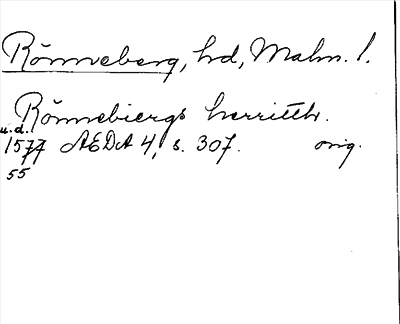 Rönneberg, hd, Malm. l.
Rönnebiergs herritth.
u.d.
1577 AEDA 4, s. 307. orig.
55